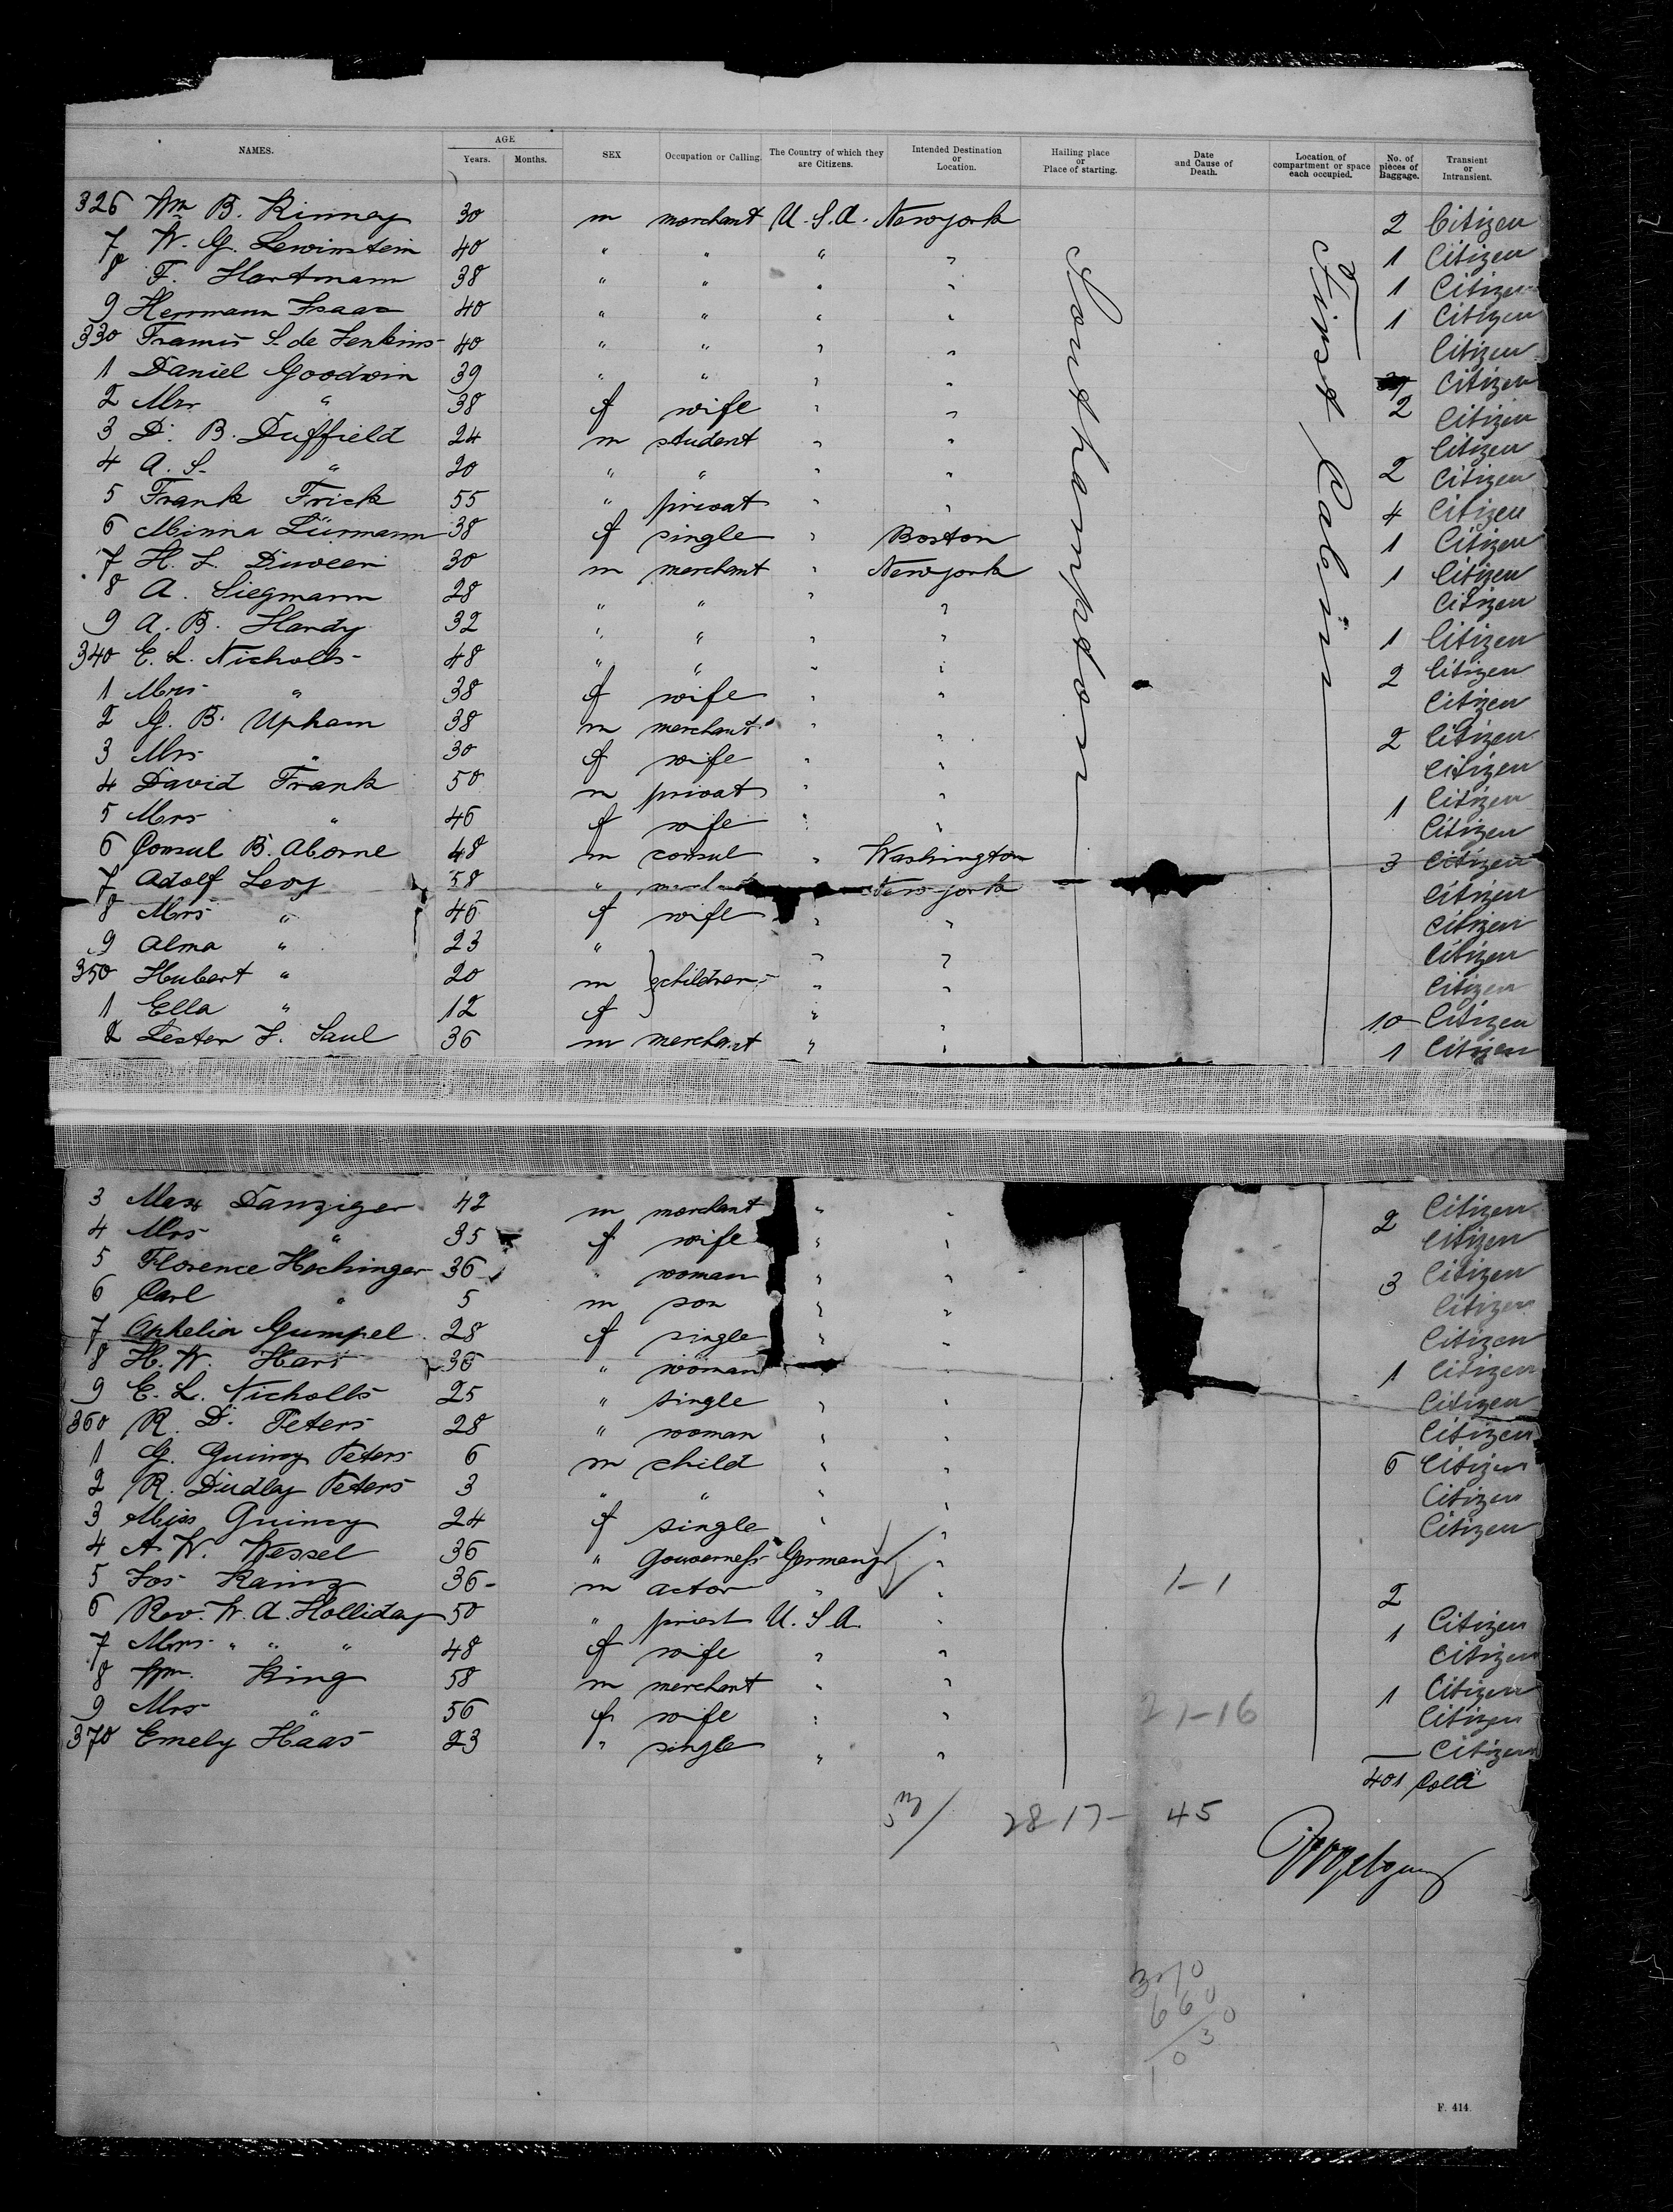 NAMES. AGE Years. Months. SEX Occupation or Calling. The Country of which they are Citizens. Intended Destination or Location. Hailing place or Place of starting. Date and Cause of Death. Location of compartment or space each occupied. No. of pieces of Baggage. Transient or Intransient.
326 Wm B. Kinney 30 m merchant U.S.A. Newyork 2 Citizen
7 W. G. Lewinstein 40 " " " " 1 Citizen
8 F. Hartmann 38 " " " " 1 Citizen
9 Herrmann Isaac 40 " " " " 1 Citizen
330 Francis S. de Jenkins 40 " " " " Citizen
1 Daniel Goodwin 39 " " " " Citizen
2 Mrs " 38 f wife " " 2 Citizen
3 D. B. Duffield 24 m student " " Citizen
4 A. S. " 20 " " " " 2 Citizen
5 Frank Frick 55 " privat " " 4 Citizen
6 Minna Lürmann 38 f single " Boston 1 Citizen
7 H. L. Duveen 30 m merchant " Newyork 1 Citizen
8 A. Siegmann 28 " " " " Citizen
9 A. B. Hardy 32 " " " " 1 Citizen
340 E. L. Nicholls 48 " " " " 2 Citizen
1 Mrs " 38 f wife " " Citizen
2 G. B. Upham 38 m merchant " " 2 Citizen
3 Mrs " 30 f wife " " Citizen
4 David Frank 50 m privat " " 1 Citizen
5 Mrs " 46 f wife " " Citizen
6 Consul B. Aborne 48 m consul " Washington 3 Citizen
7 Adolf Levy 58 " merchant New-york Citizen
8 Mrs " 46 f wife " " Citizen
9 Alma " 23 " " " Citizen
350 Hubert " 20 m children " " Citizen
1 Ella " 12 f " 10 Citizen
2 Lester J. Saul 36 m merchant " " 1 Citizen
Southampton
First Cabin
3 Max Danziger 42 m merchant " " 2 Citizen
4 Mrs " 35 f wife " " Citizen
5 Florence Hechinger 36 " woman " " 3 Citizen
6 Carl " 5 m son " " Citizen
7 Ophelia Gumpel 28 f single " " Citizen
8 H. W. Hart 36 " woman " 1 Citizen
9 E. L. Nicholls 25 " single " " Citizen
360 R. D. Peters 28 " woman " " Citizen
1 G. Quincy Peters 6 m child " " 6 Citizen
2 R. Dudley Peters 3 " " " " Citizen
3 Miss Quincy 24 f single " " Citizen
4 A. W. Wessel 36 " Gouverness Germany "
5 Jos. Kainz 36 m actor " " 1-1 2
6 Rev. W. A. Holliday 50 " priest U.S.A. " 1 Citizen
7 Mrs " " " 48 f wife " " Citizen
8 Wm. King 58 m merchant " " 1 Citizen
9 Mrs " 56 f wife " " 27-16 Citizen
370 Emely Haas 23 " single " " Citizen
401 Colli
28 17- 45
370
660
1030
F. 414.